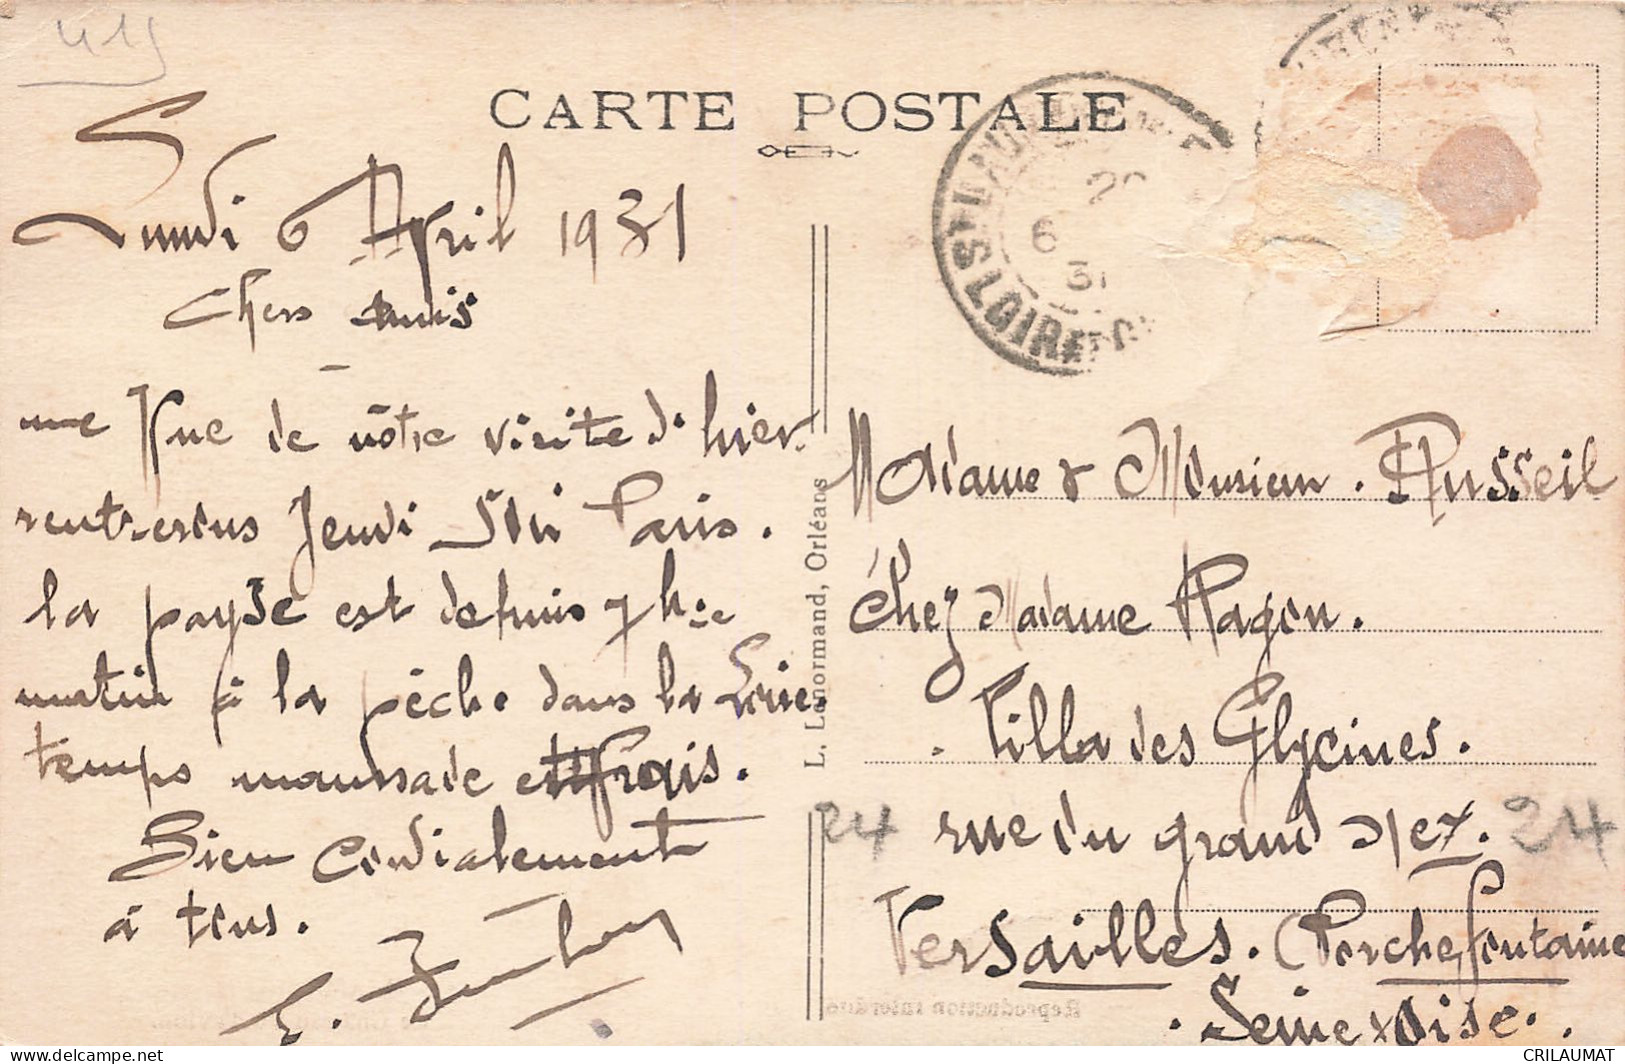 415
CARTE POSTALE
ST LAURENT
20
6
31
LOIR ET
Lundi 6 Avril 1931
Chers amis
une Vue de nôtre visite d'hier.
rentrerons Jeudi soir Paris.
la payse est depuis 7 h. de
matin à la pêche dans la Loire
temps maussade et frais.
Bien Cordialement
à tous.
L. Lenormand, Orléans
Madame & Monsieur. Russeil
Chez Madame Ragon.
Villa des Glycines.
24 rue du grand Mex. 24
Versailles. (Porchefontaine
Seine & Oise.
Reproduction interdite
CRILAUMAT